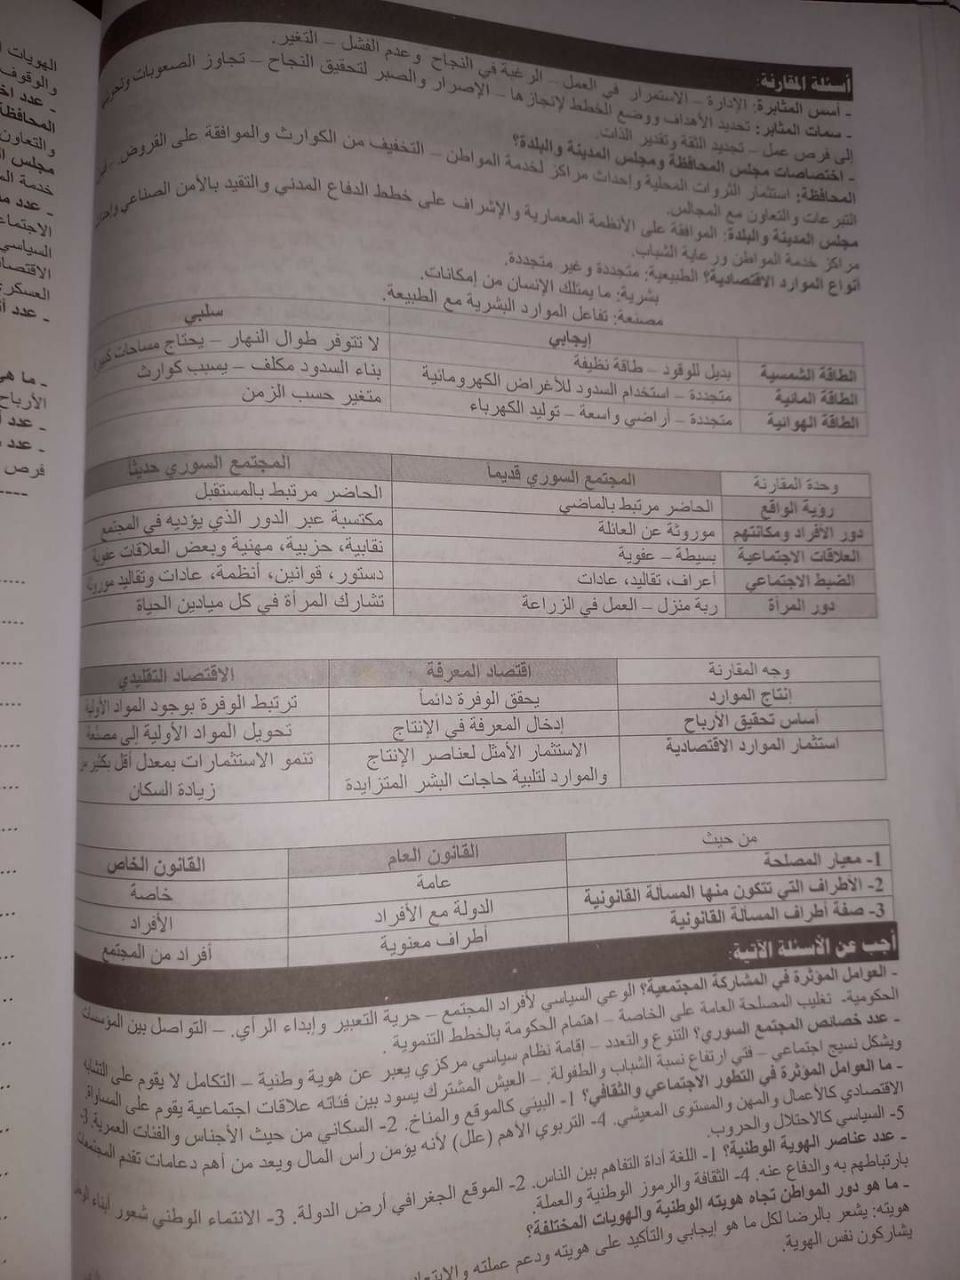 أسئلة المقارنة:
- أسس المثابرة: الإدارة – الاستمرار في العمل – الرغبة في النجاح وعدم الفشل – التغير.
- سمات المثابر: تحديد الأهداف ووضع الخطط لإنجازها – الإصرار والصبر لتحقيق النجاح – تجاوز الصعوبات
إلى فرص عمل – تجديد الثقة وتقدير الذات.
- اختصاصات مجلس المحافظة ومجلس المدينة والبلدة؟
المحافظة: استثمار الثروات المحلية وإحداث مراكز لخدمة المواطن – التخفيف من الكوارث والموافقة على القروض.
التبرعات والتعاون مع المجالس.
مجلس المدينة والبلدة: الموافقة على الأنظمة المعمارية والإشراف على خطط الدفاع المدني والتقيد بالأمن الصناعي
مراكز خدمة المواطن ورعاية الشباب.
أنواع الموارد الاقتصادية؟ الطبيعية: متجددة وغير متجددة.
بشرية: ما يمتلك الإنسان من إمكانات.
مصنعة: تفاعل الموارد البشرية مع الطبيعة.
إيجابي سلبي
الطاقة الشمسية بديل للوقود – طاقة نظيفة لا تتوفر طوال النهار – يحتاج مساحات
الطاقة المائية متجددة – استخدام السدود للأغراض الكهرومائية بناء السدود مكلف – يسبب كوارث
الطاقة الهوائية متجددة – أراضي واسعة – توليد الكهرباء متغير حسب الزمن
وحدة المقارنة المجتمع السوري قديماً المجتمع السوري حديثاً
رؤية الواقع الحاضر مرتبط بالماضي الحاضر مرتبط بالمستقبل
دور الأفراد ومكانتهم موروثة عن العائلة مكتسبة عبر الدور الذي يؤديه في المجتمع
العلاقات الاجتماعية بسيطة – عفوية نقابية، حزبية، مهنية وبعض العلاقات عفوية
الضبط الاجتماعي أعراف، تقاليد، عادات دستور، قوانين، أنظمة، عادات وتقاليد موروثة
دور المرأة ربة منزل – العمل في الزراعة تشارك المرأة في كل ميادين الحياة
وجه المقارنة اقتصاد المعرفة الاقتصاد التقليدي
إنتاج الموارد يحقق الوفرة دائماً ترتبط الوفرة بوجود المواد الأولية
أساس تحقيق الأرباح إدخال المعرفة في الإنتاج تحويل المواد الأولية إلى مصنعة
استثمار الموارد الاقتصادية الاستثمار الأمثل لعناصر الإنتاج تنمو الاستثمارات بمعدل أقل بكثير من
والموارد لتلبية حاجات البشر المتزايدة زيادة السكان
من حيث القانون العام القانون الخاص
1- معيار المصلحة عامة خاصة
2- الاطراف التي تتكون منها المسألة القانونية الدولة مع الأفراد الأفراد
3- صفة أطراف المسألة القانونية أطراف معنوية أفراد من المجتمع
أجب عن الأسئلة الآتية:
- العوامل المؤثرة في المشاركة المجتمعية؟ الوعي السياسي لأفراد المجتمع – حرية التعبير وإبداء الرأي. – التواصل بين المؤسسات
الحكومية- تغليب المصلحة العامة على الخاصة – اهتمام الحكومة بالخطط التنموية.
- عدد خصائص المجتمع السوري؟ التنوع والتعدد – إقامة نظام سياسي مركزي يعبر عن هوية وطنية – التكامل لا يقوم على التشابه
ويشكل نسيج اجتماعي – فتي ارتفاع نسبة الشباب والطفولة. – العيش المشترك يسود بين فئاته علاقات اجتماعية يقوم على المساواة.
- ما العوامل المؤثرة في التطور الاجتماعي والثقافي؟ 1- البيئي كالموقع والمناخ. 2- السكاني من حيث الأجناس والفئات العمرية. 3-
الاقتصادي كالأعمال والمهن والمستوى المعيشي. 4- التربوي الأهم (علل) لأنه يؤمن رأس المال ويعد من أهم دعامات تقدم المجتمعات
5- السياسي كالاحتلال والحروب.
- عدد عناصر الهوية الوطنية؟ 1- اللغة أداة التفاهم بين الناس. 2- الموقع الجغرافي أرض الدولة. 3- الانتماء الوطني شعور أبناء
بارتباطهم به والدفاع عنه. 4- الثقافة والرموز الوطنية والعملة.
- ما هو دور المواطن تجاه هويته الوطنية والهويات المختلفة؟
هويته: يشعر بالرضا لكل ما هو إيجابي والتأكيد على هويته ودعم عملته
يشاركون نفس الهوية.